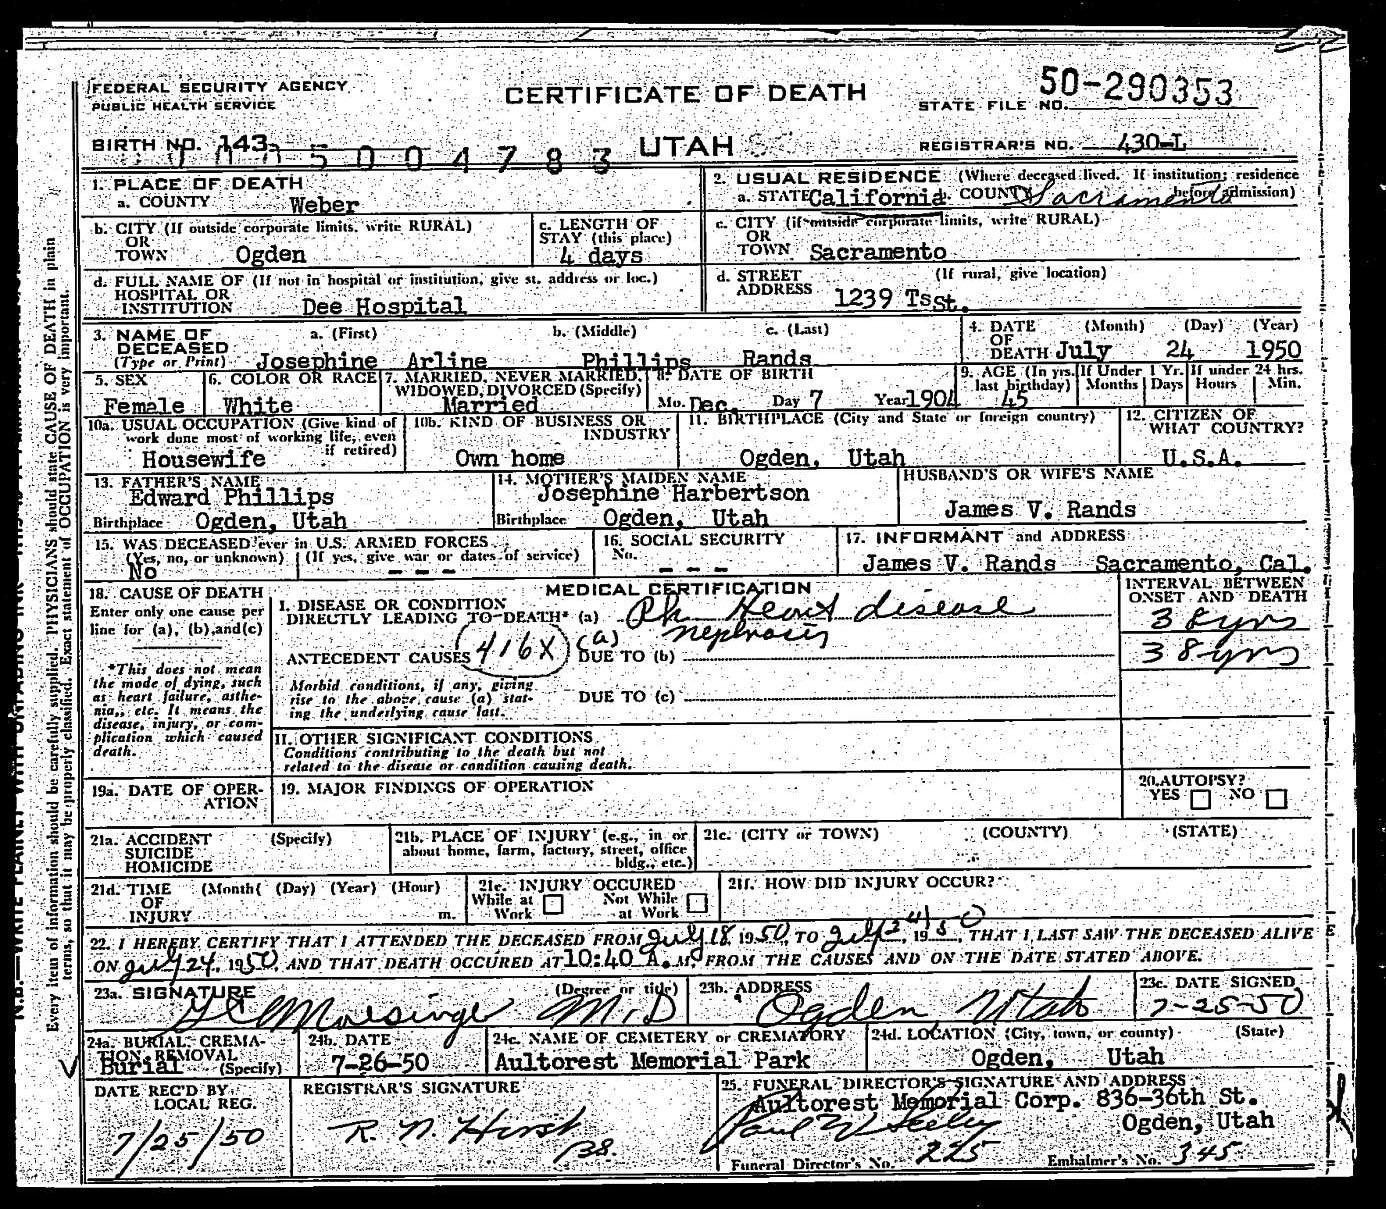 FEDERAL SECURITY AGENCY
PUBLIC HEALTH SERVICE
CERTIFICATE OF DEATH
STATE FILE NO. 50-290353
BIRTH NO. 143
5004783
UTAH
REGISTRAR'S NO. 430-L
1. PLACE OF DEATH
a. COUNTY Weber
2. USUAL RESIDENCE (Where deceased lived. If institution; residence before admission)
a. STATE California COUNTY Sacramento
b. CITY (If outside corporate limits, write RURAL)
OR
TOWN Ogden
c. LENGTH OF
STAY (this place)
4 days
c. CITY (if outside corporate limits, write RURAL)
OR
TOWN Sacramento
d. FULL NAME OF (If not in hospital or institution, give st. address or loc.)
HOSPITAL OR
INSTITUTION Dee Hospital
d. STREET (If rural, give location)
ADDRESS 1239 Ts St.
3. NAME OF DECEASED
(Type or Print)
a. (First) b. (Middle) c. (Last)
Josephine Arline Phillips Rands
4. DATE OF DEATH (Month) (Day) (Year)
July 24 1950
5. SEX
Female
6. COLOR OR RACE
White
7. MARRIED, NEVER MARRIED,
WIDOWED, DIVORCED (Specify)
Married
8. DATE OF BIRTH
Mo. Dec. Day 7 Year 1904
9. AGE (In yrs. last birthday)
45
If Under 1 Yr. Months Days
If under 24 hrs. Hours Min.
10a. USUAL OCCUPATION (Give kind of
work done most of working life, even
if retired)
Housewife
10b. KIND OF BUSINESS OR
INDUSTRY
Own home
11. BIRTHPLACE (City and State or foreign country)
Ogden, Utah
12. CITIZEN OF
WHAT COUNTRY?
U.S.A.
13. FATHER'S NAME
Edward Phillips
Birthplace Ogden, Utah
14. MOTHER'S MAIDEN NAME
Josephine Harbertson
Birthplace Ogden, Utah
HUSBAND'S OR WIFE'S NAME
James V. Rands
15. WAS DECEASED ever in U.S. ARMED FORCES
(Yes, no, or unknown) (If yes, give war or dates of service)
No - - -
16. SOCIAL SECURITY
No.
- - -
17. INFORMANT and ADDRESS
James V. Rands Sacramento, Cal.
18. CAUSE OF DEATH
Enter only one cause per
line for (a), (b), and (c)
*This does not mean
the mode of dying, such
as heart failure, asthe-
nia, etc. It means the
disease, injury, or com-
plication which caused
death.
MEDICAL CERTIFICATION
INTERVAL BETWEEN
ONSET AND DEATH
I. DISEASE OR CONDITION
DIRECTLY LEADING TO DEATH* (a) Rh Heart disease
38 yrs
(a) nephrosis
38 yrs
ANTECEDENT CAUSES 416X DUE TO (b)
Morbid conditions, if any, giving
rise to the above cause (a) stat-
ing the underlying cause last.
DUE TO (c)
II. OTHER SIGNIFICANT CONDITIONS
Conditions contributing to the death but not
related to the disease or condition causing death.
19a. DATE OF OPER-
ATION
19. MAJOR FINDINGS OF OPERATION
20. AUTOPSY?
YES NO
21a. ACCIDENT (Specify)
SUICIDE
HOMICIDE
21b. PLACE OF INJURY (e.g., in or
about home, farm, factory, street, office
bldg., etc.)
21c. (CITY or TOWN) (COUNTY) (STATE)
21d. TIME (Month) (Day) (Year) (Hour)
OF
INJURY m.
21e. INJURY OCCURED
While at Work Not While at Work
21f. HOW DID INJURY OCCUR?
22. I HEREBY CERTIFY THAT I ATTENDED THE DECEASED FROM July 18, 1950, TO July 24, 1950, THAT I LAST SAW THE DECEASED ALIVE
ON July 24, 1950, AND THAT DEATH OCCURED AT 10:40 A.M. FROM THE CAUSES AND ON THE DATE STATED ABOVE.
23a. SIGNATURE (Degree or title)
M.D
23b. ADDRESS
Ogden, Utah
23c. DATE SIGNED
7-25-50
24a. BURIAL, CREMA-
TION, REMOVAL
(Specify)
Burial
24b. DATE
7-26-50
24c. NAME OF CEMETERY or CREMATORY
Aultorest Memorial Park
24d. LOCATION (City, town, or county) (State)
Ogden, Utah
DATE REC'D BY
LOCAL REG.
7/25/50
REGISTRAR'S SIGNATURE
R. N. Hirst
/38.
25. FUNERAL DIRECTOR'S SIGNATURE AND ADDRESS
Aultorest Memorial Corp. 836-36th St.
Paul W Seeley Ogden, Utah
Funeral Director's No. 225 Embalmer's No. 345
Every item of information should be carefully supplied. PHYSICIANS should state CAUSE OF DEATH in plain
terms, so that it may be properly classified. Exact statement of OCCUPATION is very important.